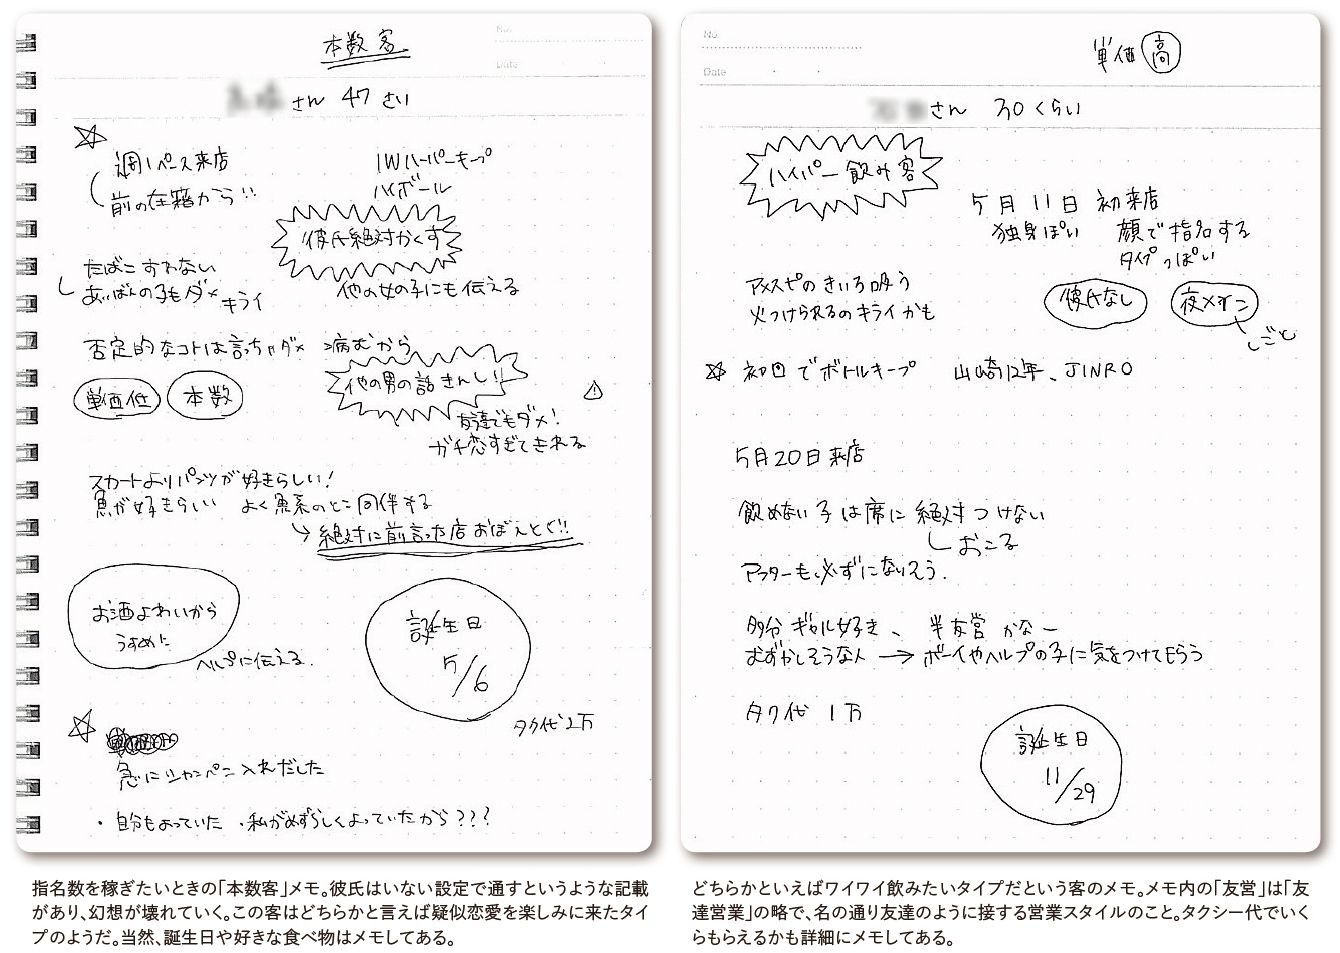 本数客
No.
Date
さん 47さい
週1ペース来店
前の在籍から!!
I Wハーパーキープ
ハイボール
彼氏絶対かくす
他の女の子にも伝える
たばこすわない
あいばんの子もダメ キライ
否定的なコトは言っちゃダメ →病むから
単価低 本数
他の男の話きんし!
友達でもダメ!
ガチ恋すぎてきれる
スカートよりパンツが好きらしい!
魚が好きらしい よく魚系のとこ同伴する
→絶対に前言った店おぼえとく!!
お酒よわいから
うすめに
ヘルプに伝える.
誕生日
5/6
タク代2万
急にシャンペン入れだした
・自分もよっていた ・私がめずらしくよっていたから???
指名数を稼ぎたいときの「本数客」メモ。彼氏はいない設定で通すというような記載
があり、幻想が壊れていく。この客はどちらかと言えば疑似恋愛を楽しみに来たタイ
プのようだ。当然、誕生日や好きな食べ物はメモしてある。
No.
Date
単価高
さん 30くらい
ハイパー飲み客
5月11日 初来店
独身ぽい 顔で指名する
タイプっぽい
アメスピのきいろ吸う
火つけられるのキライかも
彼氏なし 夜メイン
しごと
初回でボトルキープ 山崎12年、JINRO
5月20日来店
飲めない子は席に絶対つけない
おこる
アフターも必ずにないそう.
多分ギャル好き、半友営かなー
むずかしそうな人 → ボーイやヘルプの子に気をつけてもらう
タク代 1万
誕生日
11/29
どちらかといえばワイワイ飲みたいタイプだという客のメモ。メモ内の「友営」は「友
達営業」の略で、名の通り友達のように接する営業スタイルのこと。タクシー代でいく
らもらえるかも詳細にメモしてある。